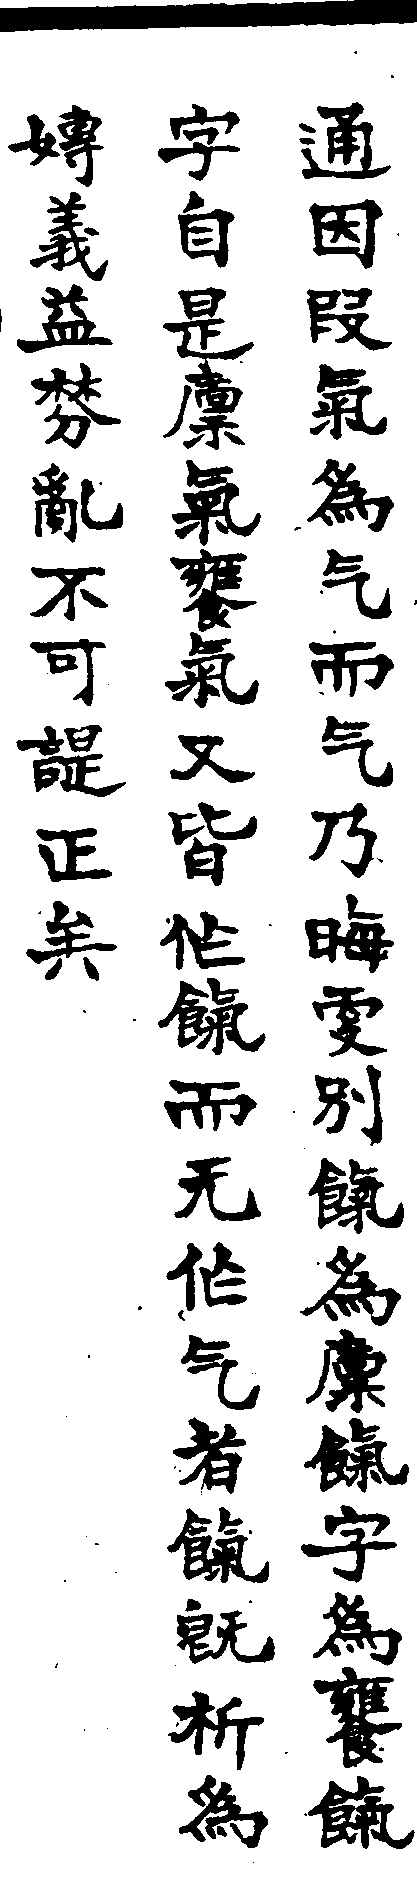 通因叚氣為气而气乃晦雯別餼為廩餼字為饔餼
字自是廩氣饔氣又皆作餼而无作气者餼旣析為
嫥義益棼亂不可諟正矣